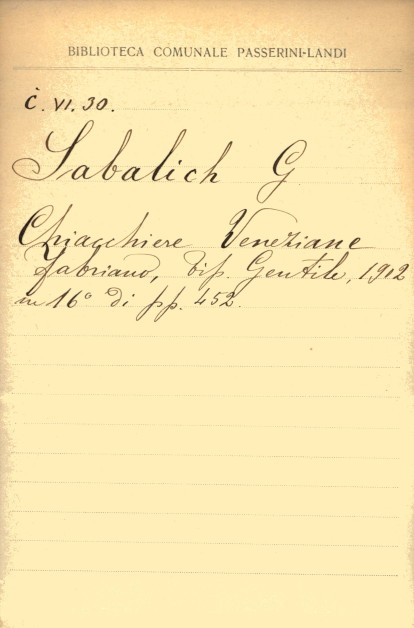 BIBLIOTECA COMUNALE PASSERINI-LANDI
Č. VI. 30.
Sabalich G
Chiacchiere Veneziane
Fabriano, Tip. Gentile, 1912
in 16° di pp. 452.